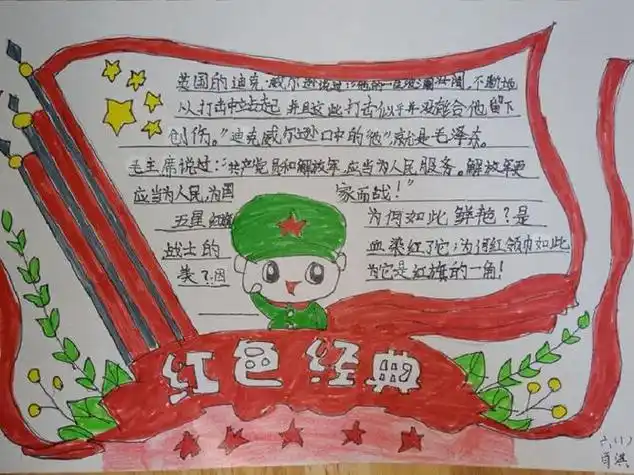 英国的迪克·威尔逊说过:"他的一生波澜壮阔,不断地
从打击中站起 并且这些打击似乎并没能给他留下
创伤。"迪克威尔逊口中的"他",就是毛泽东。
毛主席说过:"共产党员和解放军,应当为人民服务。解放军更
应当为人民,为国 家而战!"
五星红旗 为何如此鲜艳?是
战士的 血染红了它;为何红领巾如此
类?因 为它是红旗的一角!
红色经典
六(1)